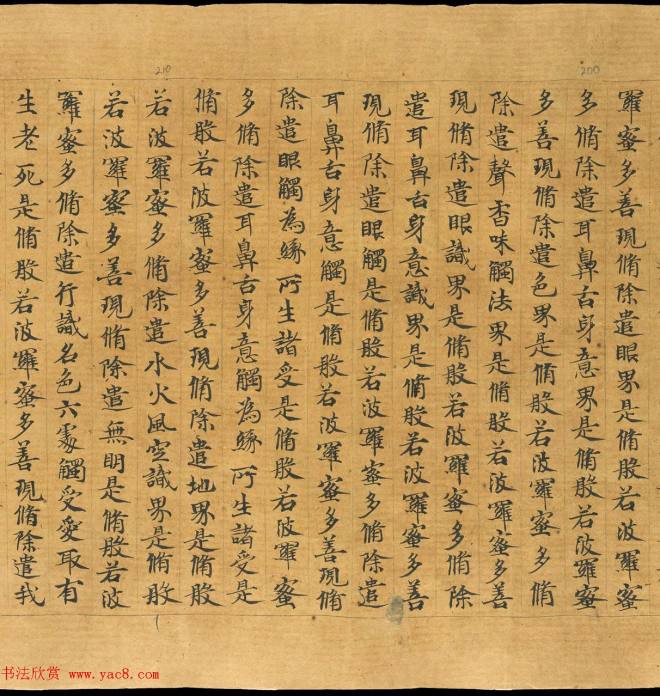 羅蜜多善現脩除遣眼界是脩般若波羅蜜
多脩除遣耳鼻舌身意界是脩般若波羅蜜
多善現脩除遣色界是脩般若波羅蜜多脩
除遣聲香味觸法界是脩般若波羅蜜多善
現脩除遣眼識界是脩般若波羅蜜多脩除
遣耳鼻舌身意識界是脩般若波羅蜜多善
現脩除遣眼觸是脩般若波羅蜜多脩除遣
耳鼻舌身意觸是脩般若波羅蜜多善現脩
除遣眼觸為緣所生諸受是脩般若波羅蜜
多脩除遣耳鼻舌身意觸為緣所生諸受是
脩般若波羅蜜多善現脩除遣地界是脩般
若波羅蜜多脩除遣水火風空識界是脩般
若波羅蜜多善現脩除遣無明是脩般若波
羅蜜多脩除遣行識名色六處觸受愛取有
生老死是脩般若波羅蜜多善現脩除遣我
200
210
书法欣赏 www.yac8.com